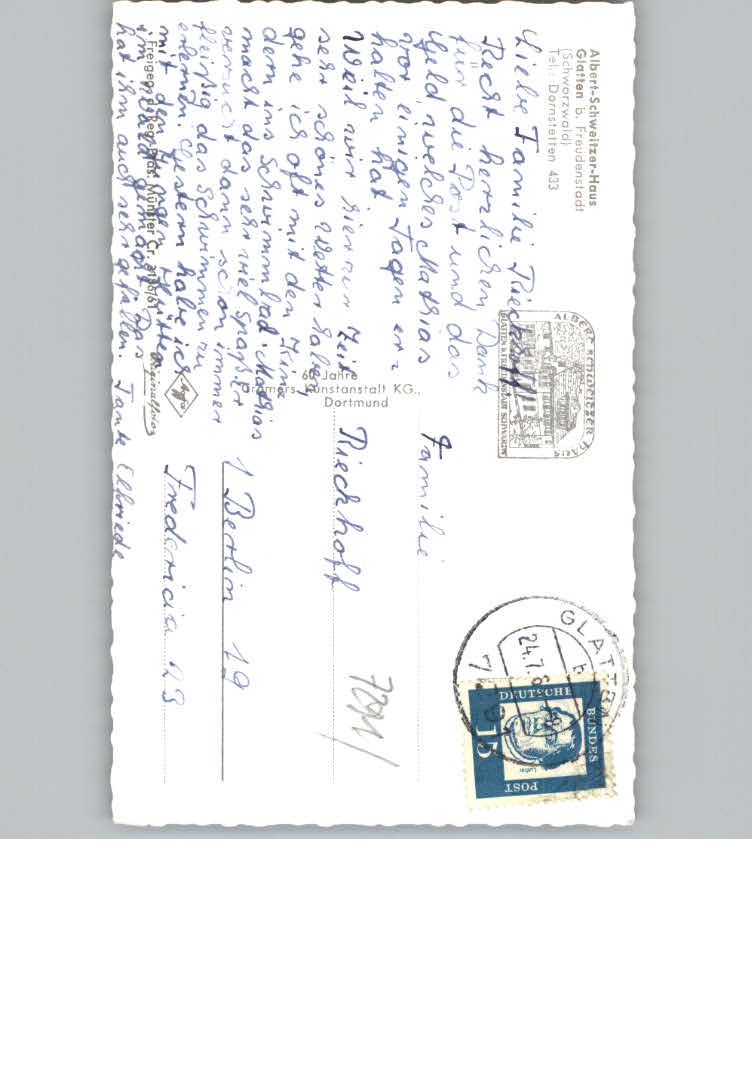 Albert-Schweitzer-Haus
Glatten b. Freudenstadt
(Schwarzwald)
Tel.: Dornstetten 433
Liebe Familie Rieckhoff!
Recht herzlichen Dank
für die Post und das
Geld, welches Mathias
vor einigen Tagen er=
halten hat.
Weil wir hier zur Zeit
sehr schönes Wetter haben
gehe ich oft mit den Kin=
dern ins Schwimmbad. Mathias
macht das sehr viel Spaß. Er
versucht dann schon immer
fleißig das Schwimmen zu
erlernen. Gestern habe ich
mit den
im Wald gemacht. Das
hat ihm auch sehr gefallen. Tante Elfriede
Freigeg. d. Reg. Präs. Münster Cr. 3186/61
60 Jahre
Cramers Kunstanstalt KG.,
Dortmund
Agfa
Originalfoto
ALBERT SCHWEITZER HAUS
GLATTEN
Familie
Rieckhoff
1 Berlin 19
Fredericia 23
GLATTEN
24.7.6
7291
DEUTSCHE
BUNDES
POST
15
Luther